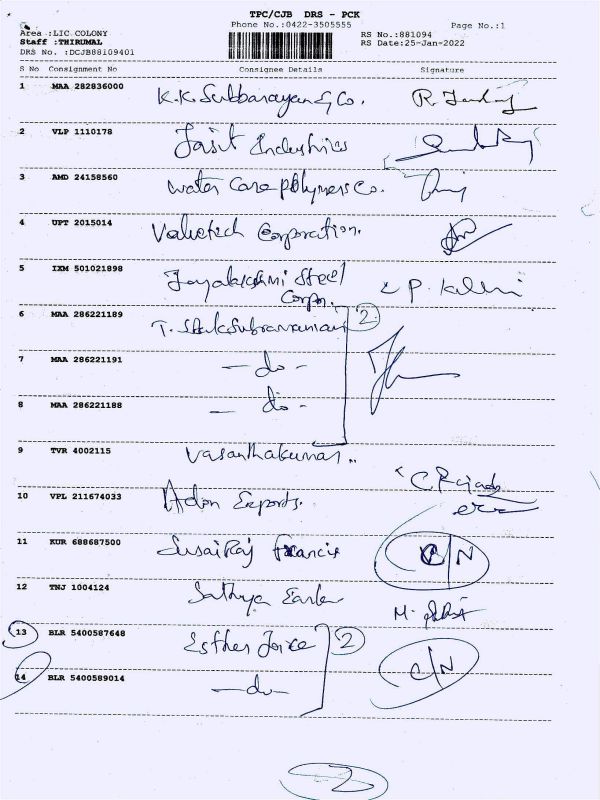 TPC/CJB DRS - PCK
Phone No.:0422-3505555 Page No.:1
Area :LIC COLONY
Staff :THIRUMAL RS No.:881094
DRS No. :DCJB88109401 RS Date:25-Jan-2022
S No Consignment No Consignee Details Signature
1 MAA 282836000 K.K. Subbarayan & Co.
2 VLP 1110178 Jasit Industries
3 AMD 24158560 Water Care Polymers Co.
4 UPT 2015014 Valuetech Corporation.
5 IXM 501021898 Jayalakshmi Steel
Corpn.
6 MAA 286221189 T. 2
7 MAA 286221191 - do -
8 MAA 286221188 - do -
9 TVR 4002115 Vasanthakumar
10 VPL 211674033 Exports.
11 KUR 688687500 Susai Raj Francis C/N
12 TNJ 1004124 Sathya
13 BLR 5400587648 Esther 2
C/N
14 BLR 5400589014 -do-
2